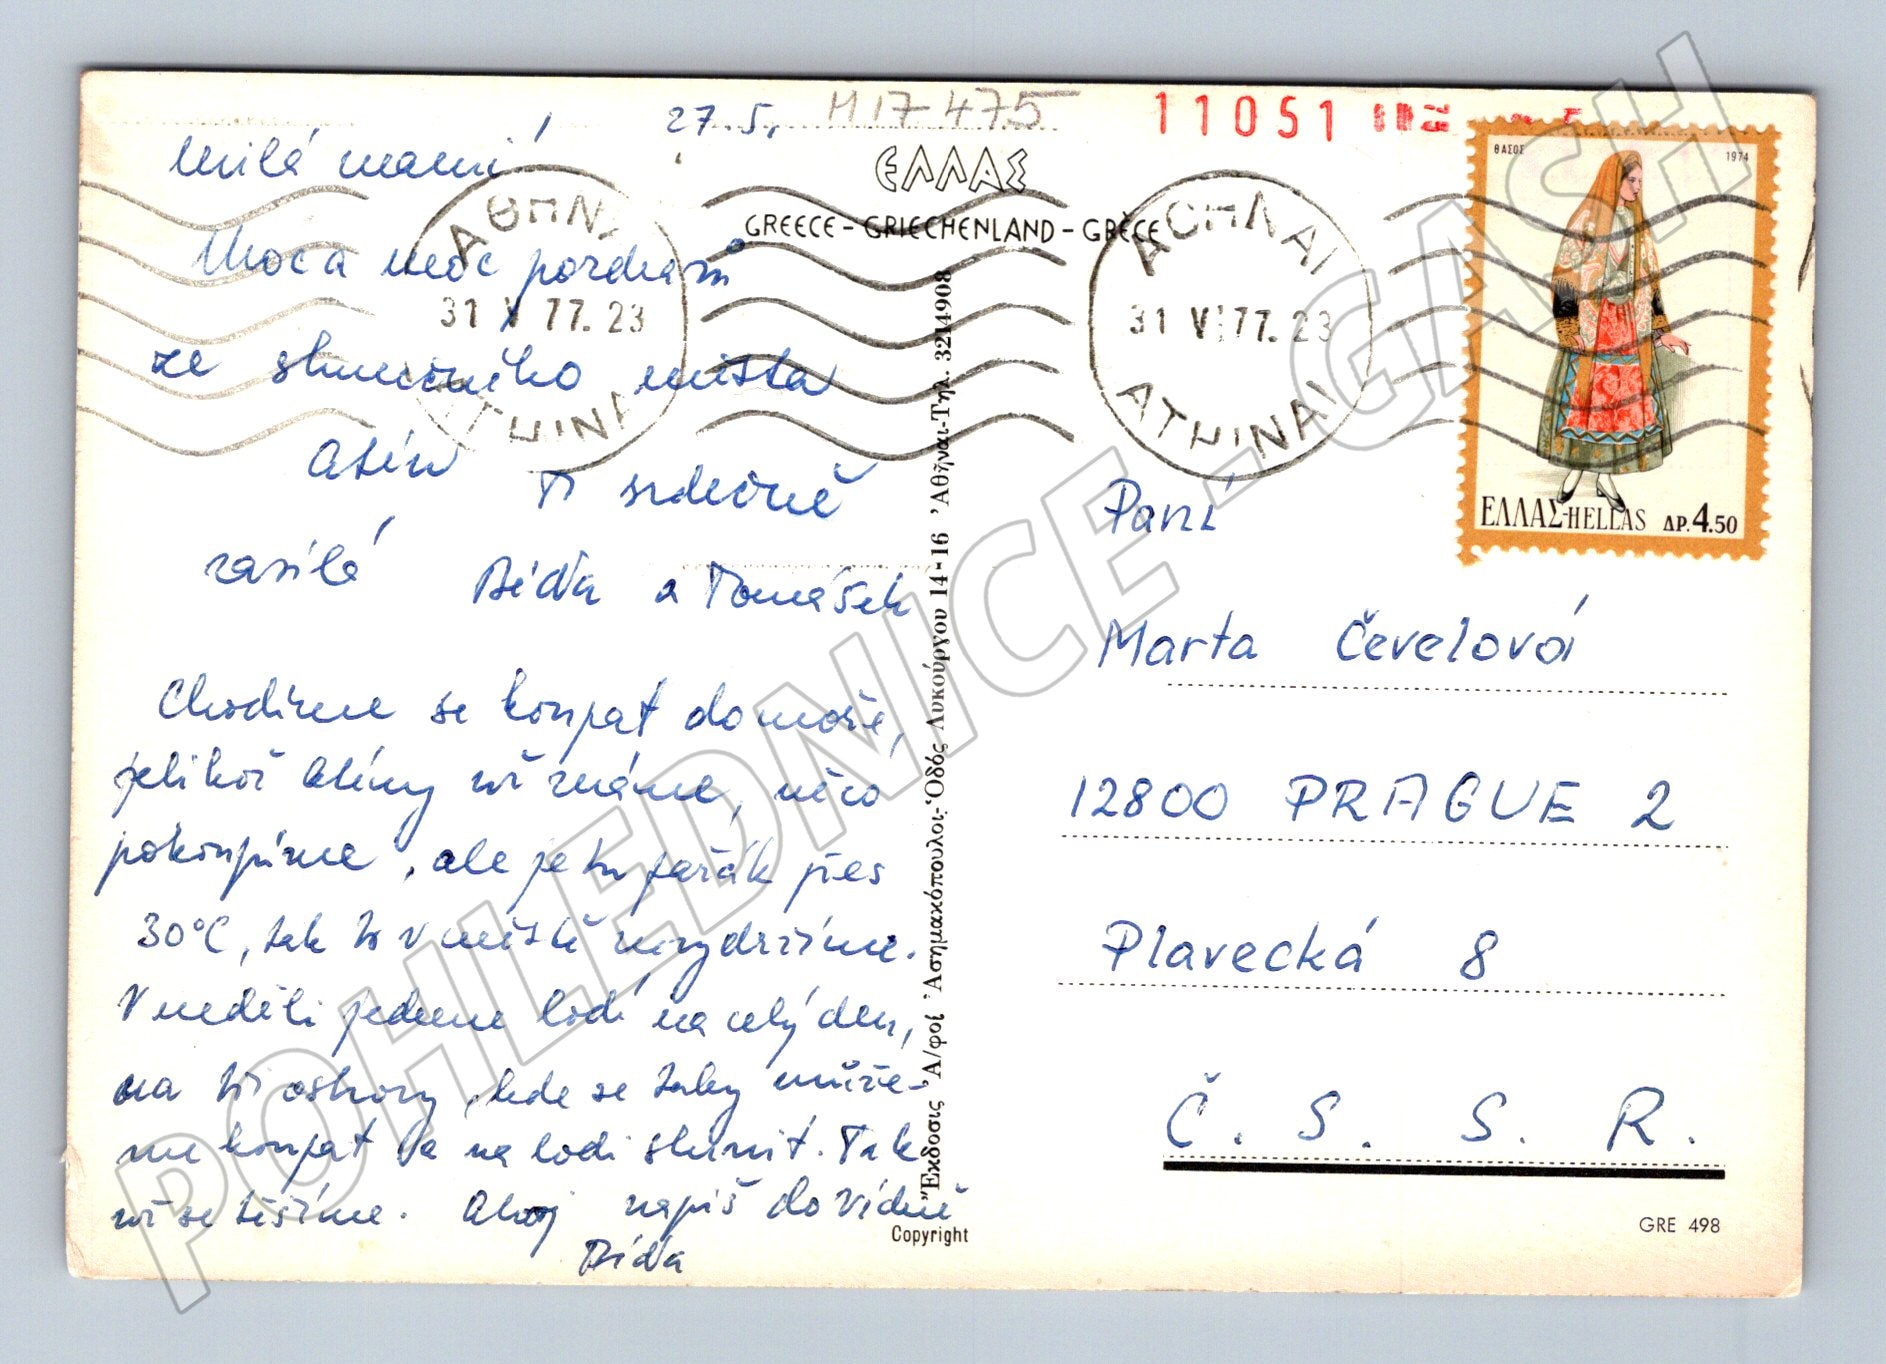 27.5.
M17475
11051
Milá mami!
ΕΛΛΑΣ
GREECE - GRIECHENLAND - GRÈCE
ΑΘΗΝΑ
31 V 77. 23
ATHINA
ΑΘΗΝΑΙ
31 V 77. 23
ATHINAI
ΘΑΣΟΣ
1974
ΕΛΛΑΣ-HELLAS ΔΡ. 4.50
Moc a moc pozdravů
ze slunečního města
Atén Ti srdečně
zasílá Biďa a Tomášek
Chodíme se koupat do moře,
jelikož Atény už známe, něco
pokoupíme, ale je tu pařák přes
30°C, tak to v městě nevydržíme.
V neděli jedeme lodí na celý den,
na tři ostrovy, kde se taky může-
me koupat a na lodi slunit. Tak
už se těšíme. Ahoj napiš do Vídně
Biďa
Ἔκδοσις Ἀ/φοὶ Ἀσημακόπουλοι-Ὁδός Λυκούργου 14-16 Ἀθῆναι-Τηλ. 3214908
Copyright
Paní
Marta Čevelová
12800 PRAGUE 2
Plavecká 8
Č. S. S. R.
GRE 498
POHLEDNICE - GASH